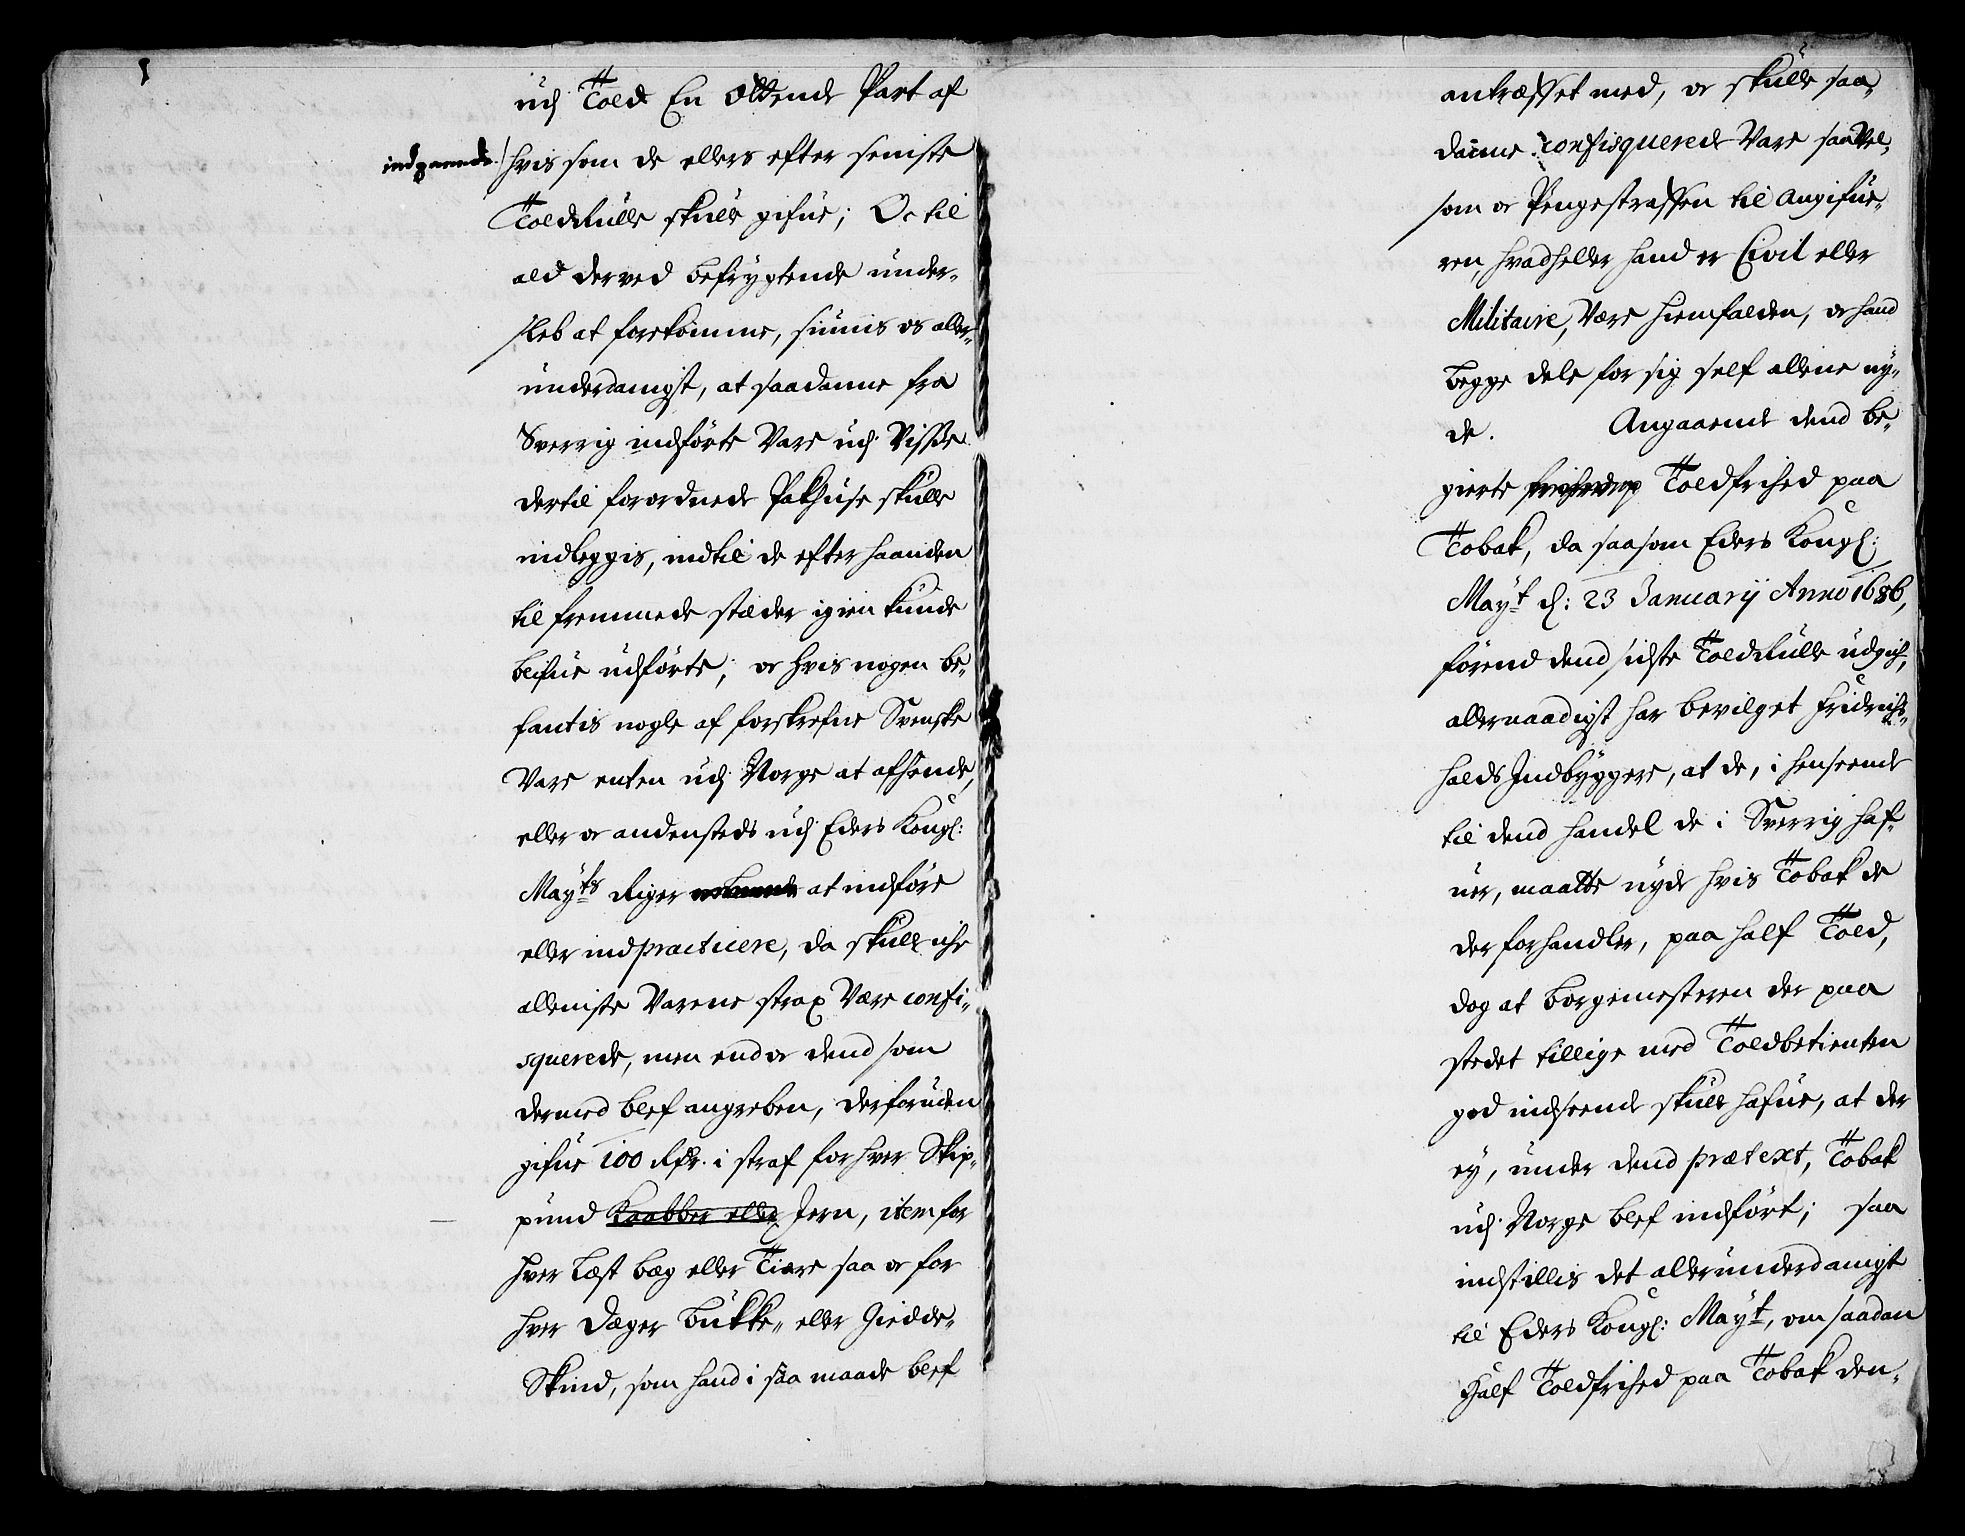 udj Told En Ottende Part af
hvis som de ellers efter seniste
Toldrulle skulle gifue; Oc til
ald derved befrygtende under-
sleb at forekomme, siunis os aller-
underdanigst, at saadanne fra
Sverrig indførte Vare udj Visse
dertil forordnede Pakhuse skulle
indleggis, indtil de efterhaanden
til fremmede stæder igien kunde
blifue udførte; oc hvis nogen be-
fantis nogle af forskrefne Svenske
Vare enten udj Norge at afhende,
eller oc andensteds udj Eders Kongl:
Mayts Riger at indføre
eller indpracticere, da skulle iche
alleniste Varene strax Være confi-
squerede, men end oc dend som
dermed blef angreben, derforuden
gifue 100 Rdr. i straf for hver Skip-
pund Kaabber eller Jern, item for
hver Læst beg eller Tiære saa oc for
hver Deger Bukke- eller Giedde-
Skind, som hand i saa maade blef
antræffet med, oc skulle saa-
danne confisquerede Vare saavel,
som oc Pengestraffen til Angifue-
ren, hvadheller hand er Civil eller
Militaire, Være hiemfalden, oc hand
begge dele for sig self allene ny-
de. Angaaende dend be-
gierte Toldfrihed paa
Tobak, da saasom Eders Kongl:
Mayt d: 23 Januarij Anno 1686,
førend dend sidste Toldrulle udgich,
allernaadigst har bevilget Fridrichs-
halds Indbyggere, at de, i henseende
til dend handel de i Sverrig haf-
uer, maatte nyde hvis Tobak de
der forhandler, paa half Told,
dog at borgemesteren der paa
stedet tillige med Toldbetienten
god indseende skulle hafue, at der
ey, under dend prætext, Tobak
udj Norge blef indført; saa
indstillis det allerunderdanigst
til Eders Kongl: Mayt, om saadan
half Toldfrihed paa Tobak den-